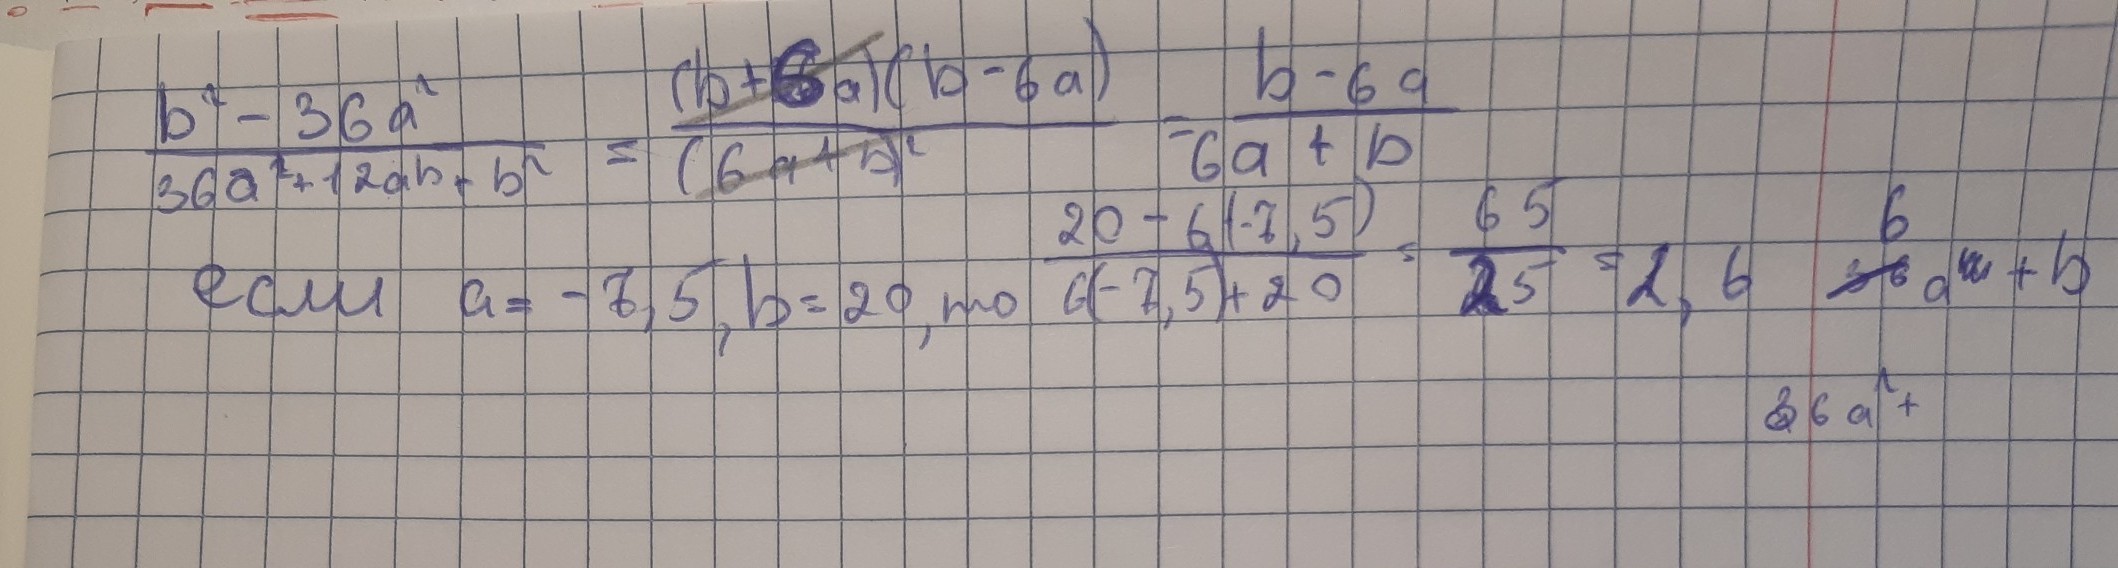 b² - 36a² / 36a² + 12ab + b² = (b + 6a)(b - 6a) / (6a + b)² = b - 6a / 6a + b
если a = -7,5, b = 20, то 20 - 6(-7,5) / 6(-7,5) + 20 = 65 / 25 = 2,6
6
a + b
36a² +